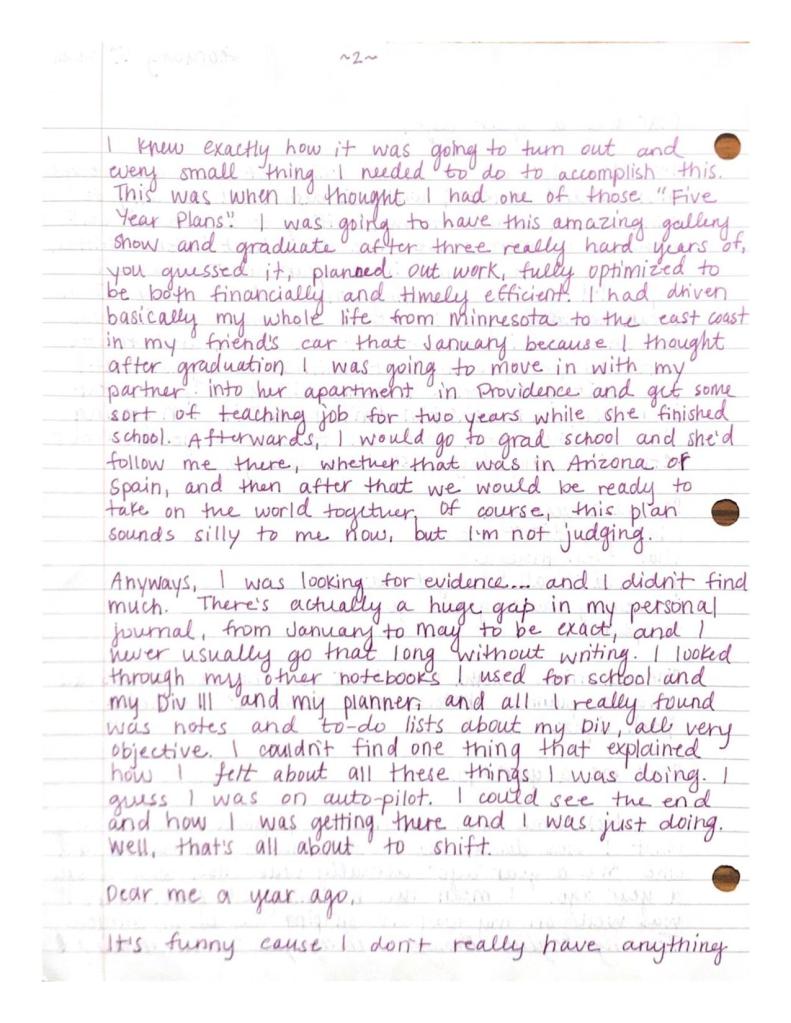 ~2~
I knew exactly how it was going to turn out and
every small thing I needed to do to accomplish this.
This was when I thought I had one of those "Five
Year Plans". I was going to have this amazing gallery
show and graduate after three really hard years of,
you guessed it, planned out work, fully optimized to
be both financially and timely efficient. I had driven
basically my whole life from Minnesota to the east coast
in my friend's car that January because I thought
after graduation I was going to move in with my
partner into her apartment in Providence and get some
sort of teaching job for two years while she finished
school. Afterwards, I would go to grad school and she'd
follow me there, whether that was in Arizona or
Spain, and then after that we would be ready to
take on the world together. Of course, this plan
sounds silly to me now, but I'm not judging.
Anyways, I was looking for evidence... and I didn't find
much. There's actually a huge gap in my personal
journal, from January to May to be exact, and I
never usually go that long without writing. I looked
through my other notebooks I used for school and
my Div III and my planner, and all I really found
was notes and to-do lists about my Div, all very
objective. I couldn't find one thing that explained
how I felt about all these things I was doing. I
guess I was on auto-pilot. I could see the end
and how I was getting there and I was just doing.
Well, that's all about to shift.
Dear me a year ago,
It's funny cause I don't really have anything